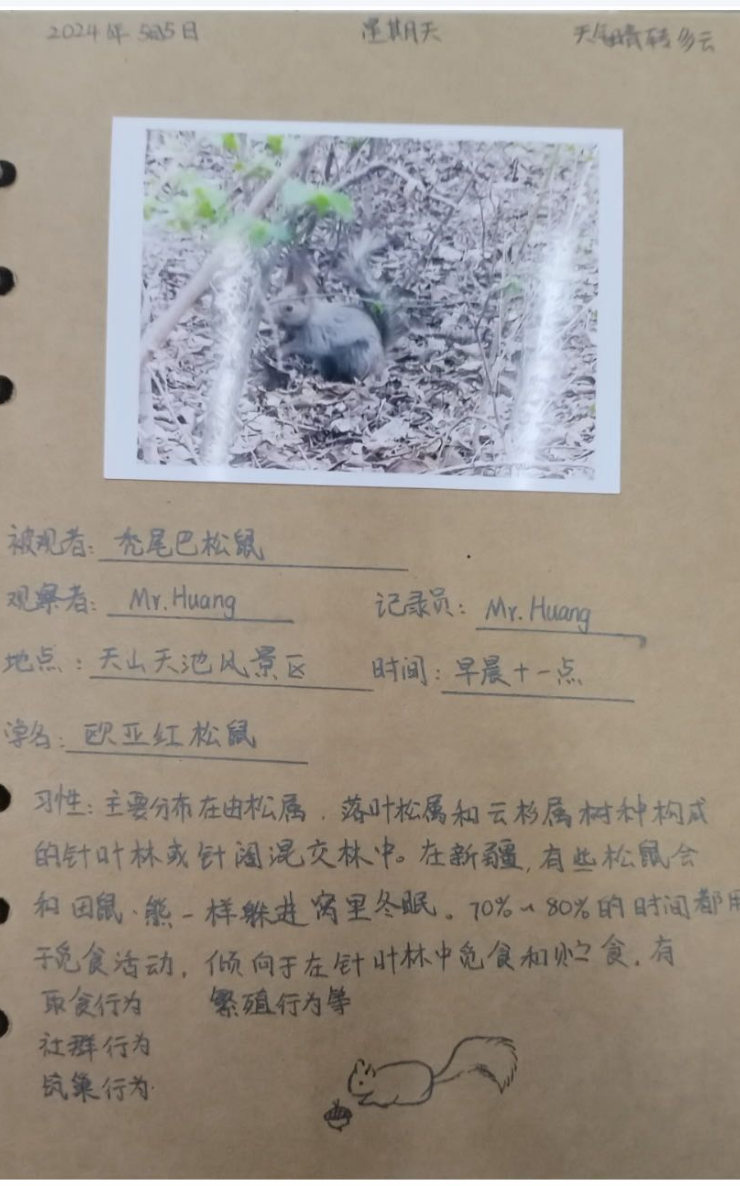 2024年 5月5日 星期天 天气晴转多云
被观者: 秃尾巴松鼠
观察者: Mr. Huang 记录员: Mr. Huang
地点: 天山天池风景区 时间: 早晨十一点
学名: 欧亚红松鼠
习性: 主要分布在由松属、落叶松属和云杉属树种构成
的针叶林或针阔混交林中。在新疆,有些松鼠会
和田鼠、熊一样躲进窝里冬眠。70%~80%的时间都用
于觅食活动,倾向于在针叶林中觅食和贮食,有
取食行为 繁殖行为等
社群行为
筑巢行为